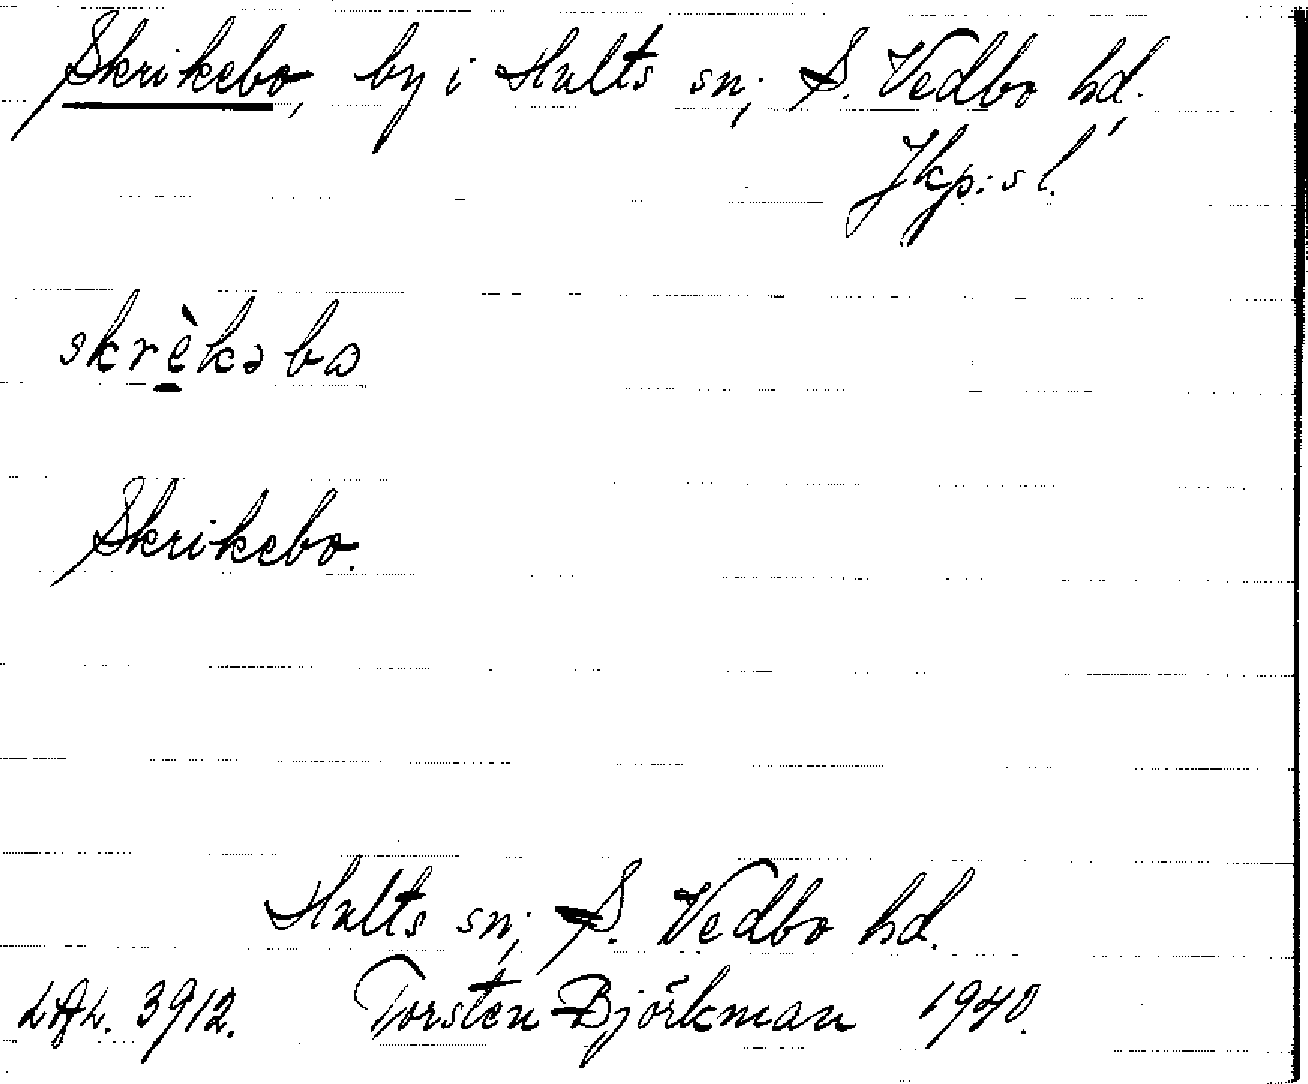 Skrikebo, by i Hults sn; S. Vedbo hd.,
Jkp:s l.
skrèkəbo
Skrikebo.
Hults sn; S. Vedbo hd.
3912. Torsten Björkman 1940.